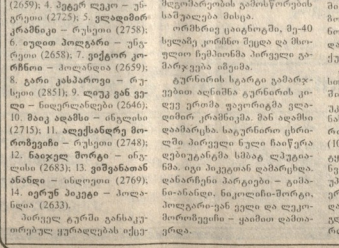 (2659); 4. პეტერ ლეკო – უნ-
გრეთი (2725); 5. ვლადიმირ
კრამნიკი – რუსეთი (2758);
6. იუდით პოლგარი – უნგ-
რეთი (2658); 7. ვიქტორ კო-
რჩნოი – ჰოლანდია (2659);
8. გარი კასპაროვი – რუ-
სეთი (2851); 9. ლიუკ ვან ვე-
ლი – ნიდერლანდები (2646);
10. მაიკ ადამსი – ინგლისი
(2715); 11. ალექსანდრე მო-
როზევიჩი – რუსეთი (2748);
12. ნაიჯელ შორტი – ინგ-
ლისი (2683); 13. ვიშვანათან
ანანდი – ინდოეთი (2769);
14. იერუნ პიკეტი – ჰოლა-
ნდია (2633).
პირველ ტურში განსაკუ-
თრებულ ყურადღებას იქცე-
მდგომარეობის გამოსწორების
საშუალება მისცა.
ორმხრივ ცაიტნოტში, მე-40
სვლაზე კორჩნოი შეცდა და მსო-
ფლიო ჩემპიონმა პირველი გა-
მარჯვება იზეიმა.
ტურნირის სტარტი გამარჯ-
ვებით აღნიშნა ტურნირის კი-
დევ ერთმა ფავორიტმა ვლა-
დიმირ კრამნიკმა. მან ადამსი
დაამარცხა. სატურნირო ცხრი-
ლში პირველი ნული ჩაიწერა
დებიუტანტმა სმბატ ლპუტია-
ნმა. იგი პიკეტთან დამარცხდა.
დანარჩენი პარტიები – ტიმა-
ნი-ანანდი, ნიკოლიჩი-შორტი,
პოლგარი-ვან ველი და ლეკო-
მოროზევიჩი – ყაიმით დამთა-
ვრდა.